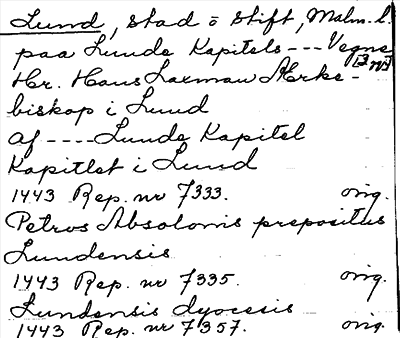 Lund, stad o stift, Malm. l.
paa Lunde Kapitels --- Vegne
Hr. Hans Laxman Ærke-
biskop i Lund
af ---- Lunde Kapitel
Kapitlet i Lund
1443 Rep. nr 7333. orig.
Petrus Absolonis prepositus
Lundensis
1443 Rep. nr 7335. orig.
Lundensis dyocesis
1443 Rep. nr 7357. orig.